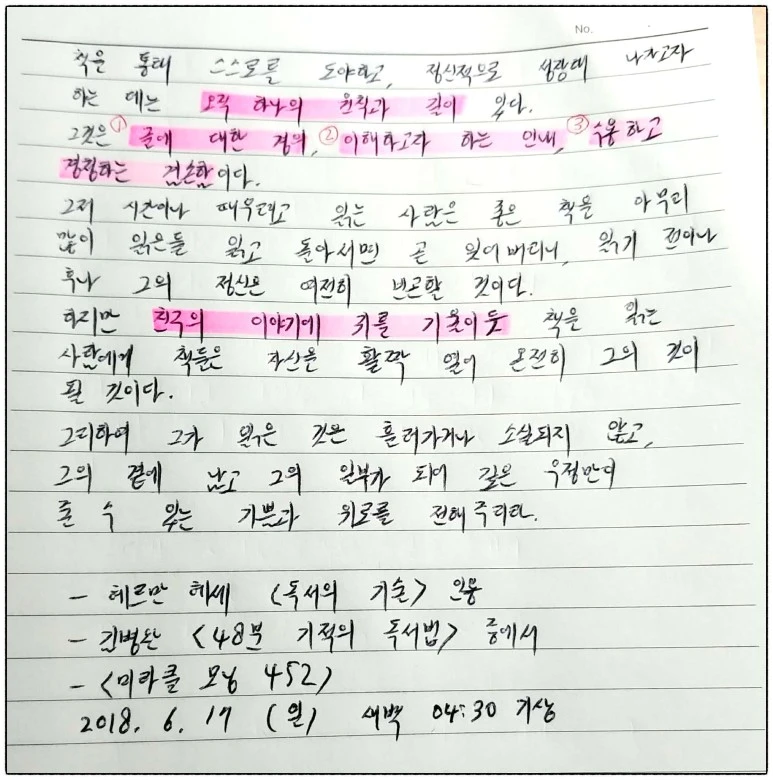 No.
책을 통해 스스로를 도야하고, 정신적으로 성장해 나가고자
하는 데는 오직 하나의 원칙과 길이 있다.
그것은 ① 글에 대한 경의, ② 이해하고자 하는 인내, ③ 수용하고
경청하는 겸손함이다.
그저 시간이나 때우려고 읽는 사람은 좋은 책을 아무리
많이 읽은들 읽고 돌아서면 곧 잊어버리니, 읽기 전이나
후나 그의 정신은 여전히 빈곤할 것이다.
하지만 친구의 이야기에 귀를 기울이듯 책을 읽는
사람에게 책들은 자신을 활짝 열어 온전히 그의 것이
될 것이다.
그리하여 그가 읽은 것은 흘러가거나 소실되지 않고,
그의 곁에 남고 그의 일부가 되어 깊은 우정만이
줄 수 있는 기쁨과 위로를 전해주리라.
- 헤르만 헤세 <독서의 기술> 인용
- 김병완 <48분 기적의 독서법> 중에서
- <미라클 모닝 452>
2018. 6. 17 (일) 새벽 04:30 기상